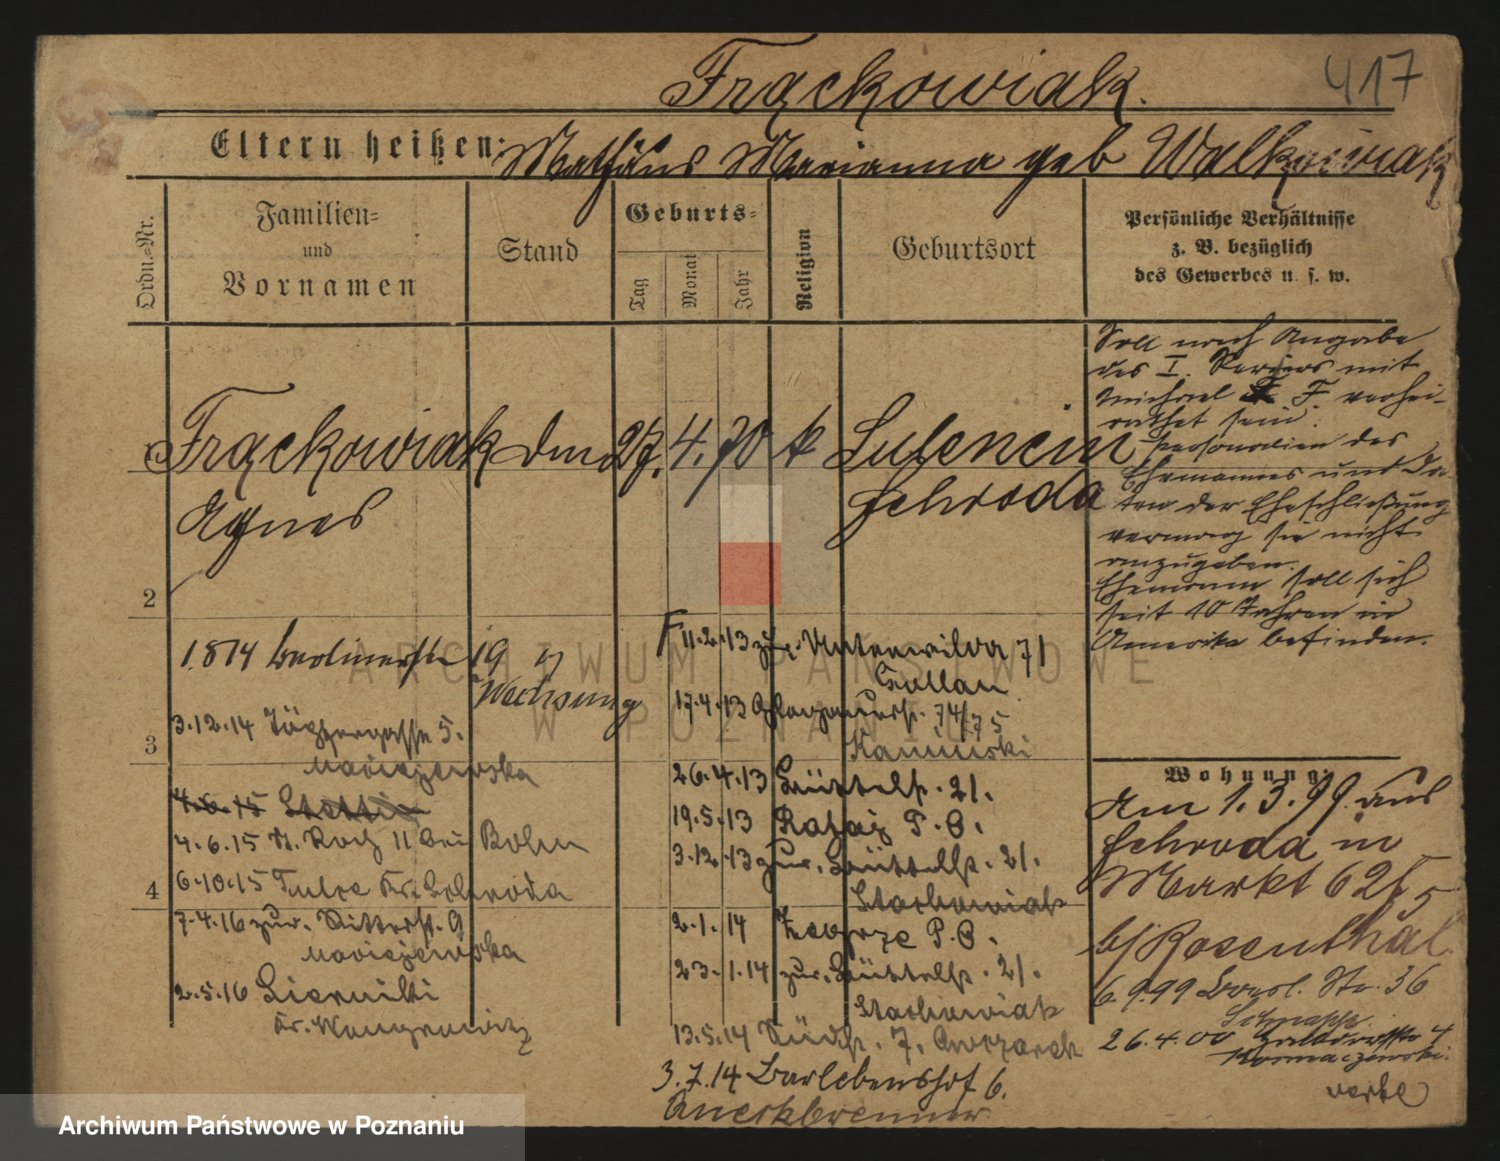 Frąckowiak.
417
Eltern heißen: Mathäus Marianna geb Walkowiak
Ordn.-Nr.
Familien-
und
Vornamen
Stand
Geburts-
Tag
Monat
Jahr
Religion
Geburtsort
Persönliche Verhältnisse
z. B. bezüglich
des Gewerbes u. s. w.
Frąckowiak
Agnes
27. 4. 70 k
Schroda
Soll nach Angabe
des I. Reviers mit
Michael F verhei-
rathet sein.
Personalien des
Ehemannes und Da-
ten der Eheschließung
vermag sie nicht
anzugeben.
Ehemann soll sich
seit 10 Jahren in
Amerika befinden.
2
3
4
1.8 14 Berlinerstr 19
3.12.14 5.
Maciejewska
4.6.15 Stettin
4.6.15 St. Roch 11 bei Bohn
6.10.15 Tulce Kr. Schroda
7.4.16 zur. Ritterstr. 9
Maciejewska
2.5.16
Kr. Wongrowitz
F 11.2.13 zur. Unterwilda 71
17.4.13 Glogauerstr. 74/75
Kaminski
26.4.13 21.
19.5.13 Rataj P. O.
3.12.13 zur. 21.
Stachowiak
2.1.14 Zegrze P. O.
23.1.14 zur. 21.
Stachowiak
13.5.14 7.
3.7.14 6.
Wohnung
Am 1.3.99 aus
Schroda in
Markt 62
b/ Rosenthal
6.9.99 Bresl. Str. 36
26.4.00
ARCHIWUM PAŃSTWOWE
W POZNANIU
Archiwum Państwowe w Poznaniu